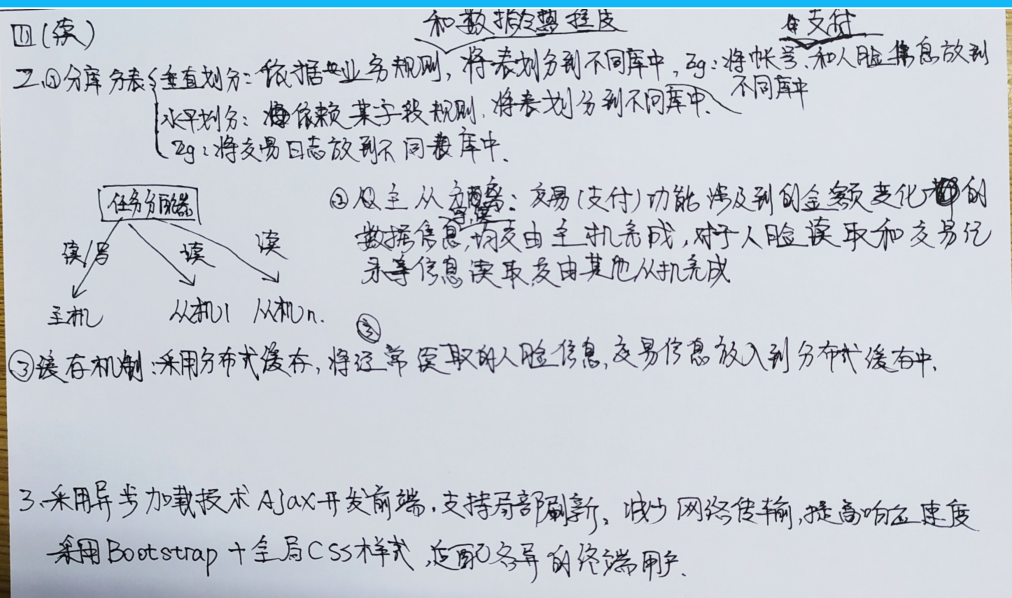 四(续) 和数据急剧程度 支付
2.①分库分表 垂直划分：依据业务规则，将表划分到不同库中，Eg：将帐号、和人脸信息放到
不同库中
水平划分：依赖某字段规则，将表划分到不同库中、
Eg：将交易日志放到不同表库中、
任务分配器
读/写 读 读
主机 从机1 从机n.
② 主从分离：交易(支付)功能涉及到的金额变化的
数据信息，均交由主机完成，对于人脸读取和交易记
录等信息读取交由其他从机完成
③
③缓存机制：采用分布式缓存，将经常读取的人脸信息，交易信息放入到分布式缓存中.
3.采用异步加载技术Ajax开发前端，支持局部刷新。减少网络传输，提高响应速度
采用Bootstrap+全局CSS样式，适配各异的终端用户.